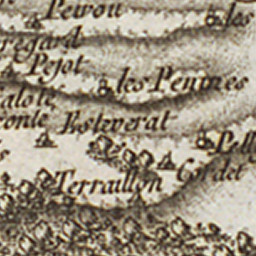 Peirou
les
regard
Pejot
les Penines
alote
conte
Esteverat
Pell
s
Terraillon
Cordet